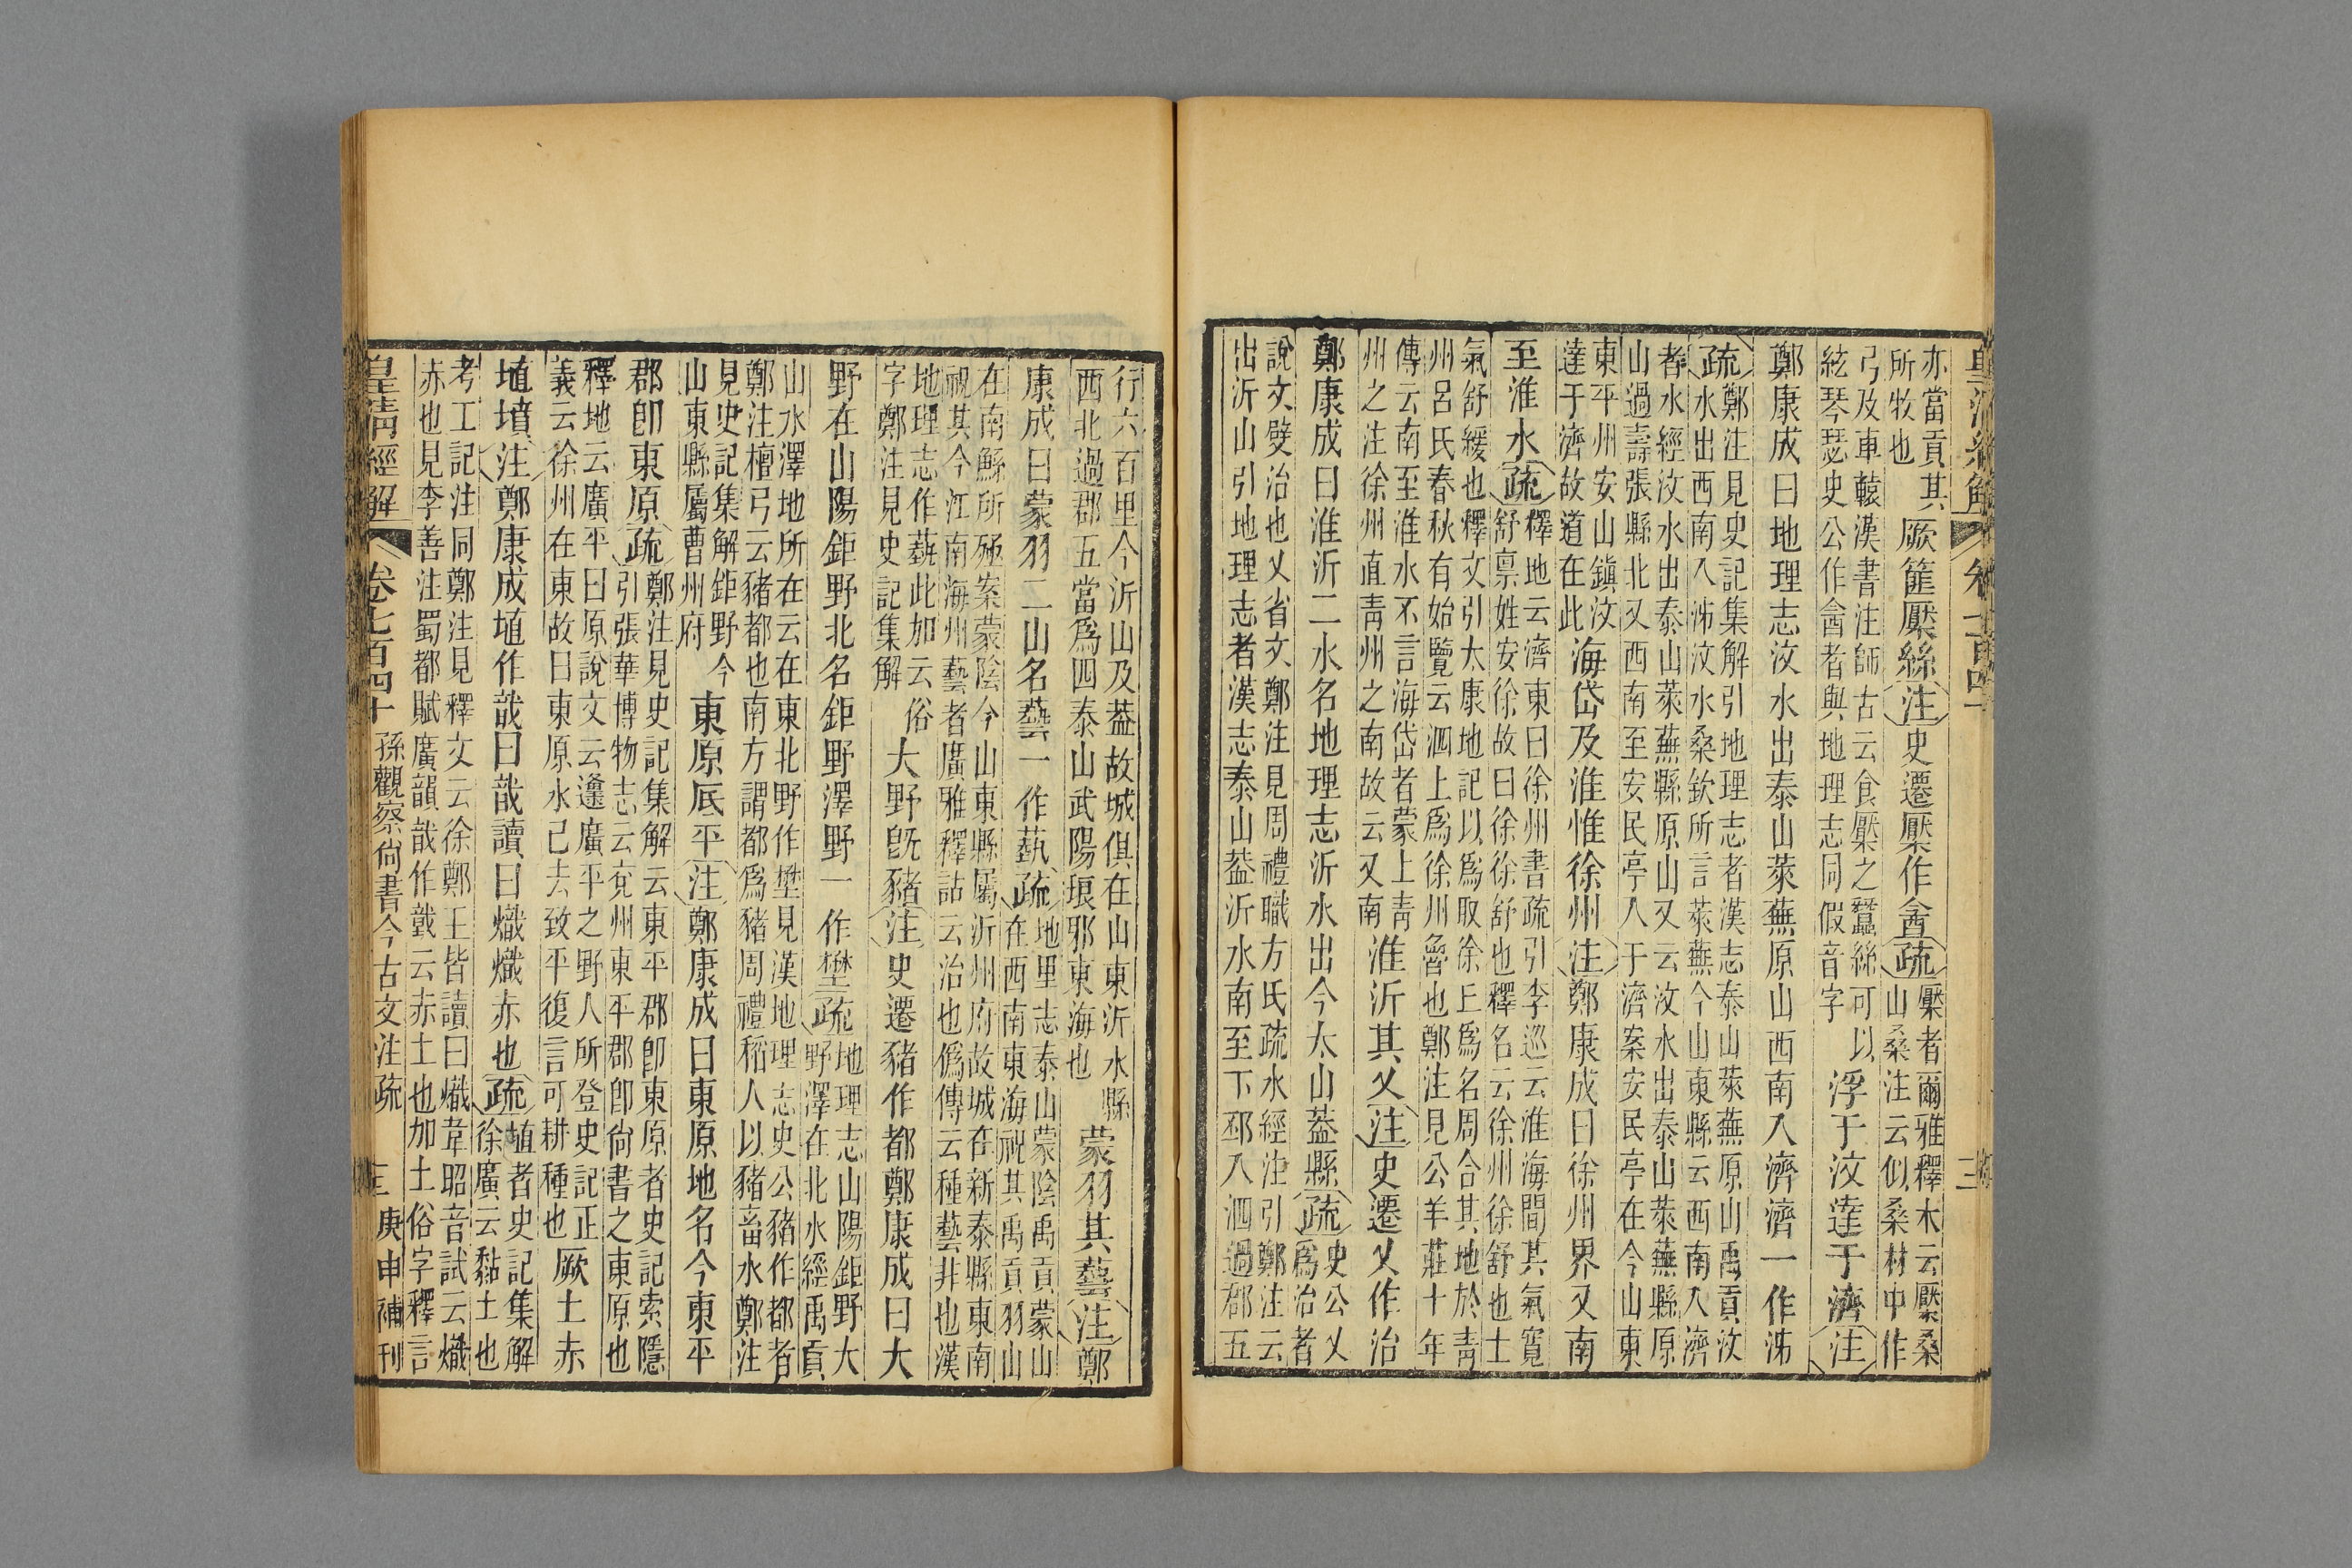 皇清經解 卷七百四十 三
亦當貢其所牧也厥篚檿絲注史遷檿作酓疏檿者爾雅釋木云檿桑山桑注云似桑材中作
弓及車轅漢書注師古云食檿之蠶絲可以絃琴瑟史公作酓者與地理志同假音字浮于汶達于濟注
鄭康成曰地理志汶水出泰山萊蕪原山西南入濟濟一作泲
疏鄭注見史記集解引地理志者漢志泰山萊蕪原山禹貢汶水出西南入泲汶水桑欽所言萊蕪今山東縣云西南入濟
者水經汶水出泰山萊蕪縣原山又云汶水出泰山萊蕪縣原山過壽張縣北又西南至安民亭入于濟案安民亭在今山東
東平州安山鎭汶達于濟故道在此海岱及淮惟徐州注鄭康成曰徐州界又南
至淮水疏釋地云濟東曰徐州書疏引李巡云淮海間其氣寬舒禀姓安徐故曰徐徐舒也釋名云徐州徐舒也士
氣舒緩也釋文引太康地記以爲取徐丘爲名周合其地於靑州呂氏春秋有始覽云泗上爲徐州魯也鄭注見公羊莊十年
傳云南至淮水不言海岱者蒙上靑州之注徐州直靑州之南故云又南淮沂其乂注史遷乂作治
鄭康成曰淮沂二水名地理志沂水出今太山蓋縣疏史公乂爲治者
說文嬖治也乂省文鄭注見周禮職方氏疏水經注引鄭注云出沂山引地理志者漢志泰山蓋沂水南至下邳入泗過郡五
行六百里今沂山及蓋故城俱在山東沂水縣西北過郡五當爲四泰山武陽琅邪東海也蒙羽其藝注鄭
康成曰蒙羽二山名藝一作蓺疏地里志泰山蒙陰禹貢蒙山在西南東海祝其禹貢羽山
在南鯀所殛案蒙陰今山東縣屬沂州府故城在新泰縣東南祝其今江南海州藝者廣雅釋詁云治也僞傳云種藝非也漢
地理志作蓺此加云俗字鄭注見史記集解大野旣豬注史遷豬作都鄭康成曰大
野在山陽鉅野北名鉅野澤野一作壄疏地理志山陽鉅野大野澤在北水經禹貢
山水澤地所在云在東北野作壄見漢地理志史公豬作都者鄭注檀弓云豬都也南方謂都爲豬周禮稻人以豬畜水鄭注
見史記集解鉅野今山東縣屬曹州府東原厎平注鄭康成曰東原地名今東平
郡卽東原疏鄭注見史記集解云東平郡卽東原者史記索隱引張華博物志云兗州東平郡卽尙書之東原也
釋地云廣平曰原說文云邍廣平之野人所登史記正義云徐州在東故曰東原水已去致平復言可耕種也厥土赤
埴墳注鄭康成埴作戠曰戠讀曰熾熾赤也疏埴者史記集解徐廣云黏土也
考工記注同鄭注見釋文云徐鄭王皆讀曰熾韋昭音試云熾赤也見李善注蜀都賦廣韻戠作㦸云赤土也加土俗字釋言
皇淸經解 卷七百四十 孫觀察尙書今古文注疏 三 庚申補刊